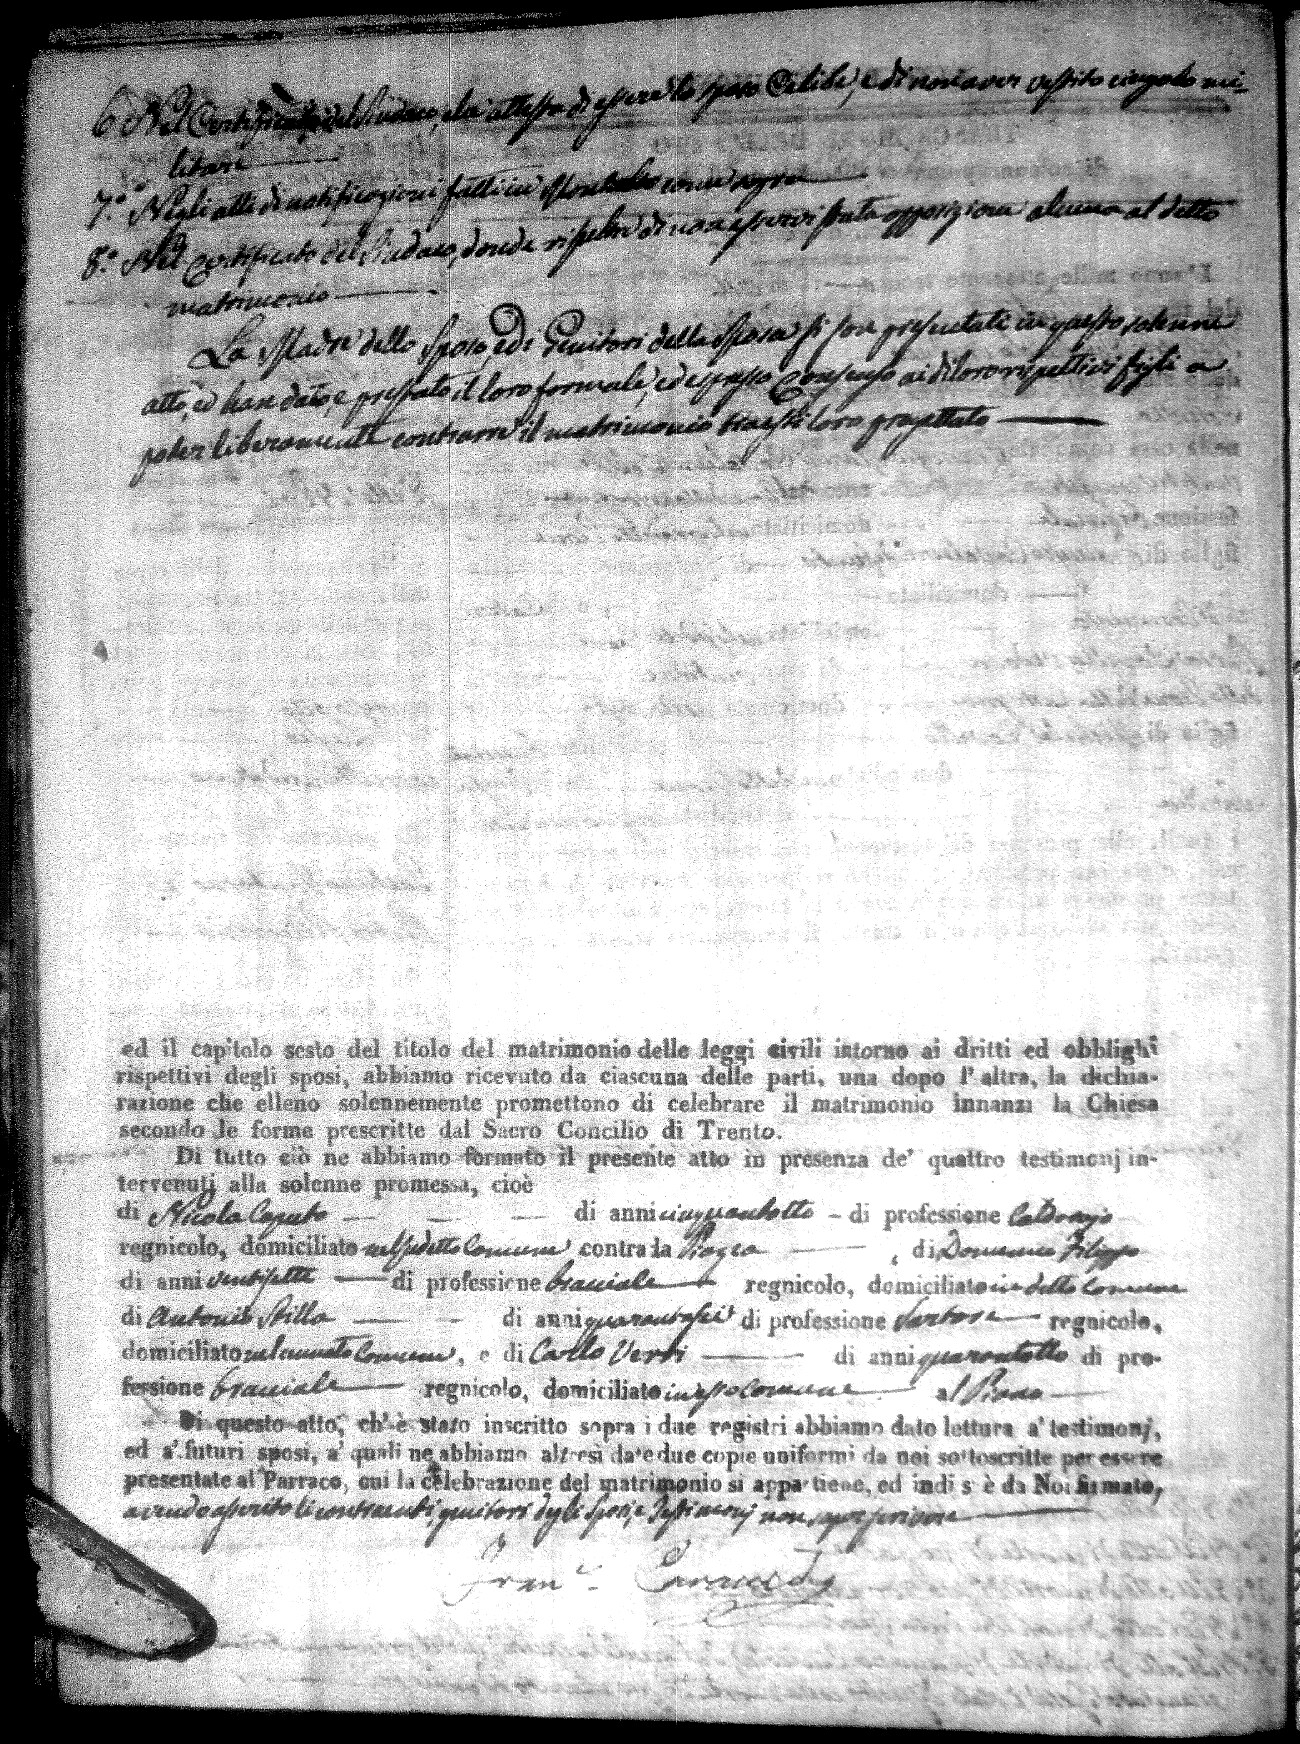 6. Nel Certificato del Sindaco, che attesta di essere lo sposo Celibe, e di non aver vestito cingolo mi-
litare
7.° Negli atti di notificazioni fatti in
8.° Nel Certificato del Sindaco, donde risulta di non esservi stata opposizione alcuna al detto
matrimonio
La Madre dello Sposo, ed i Genitori della Sposa si son presentati in questo solenne
atto, ed han dato, e prestato il loro formale, ed espresso Consenso ai di loro rispettivi figli a
poter liberamente contrarre il matrimonio tra essi loro progettato
ed il capitolo sesto del titolo del matrimonio delle leggi civili intorno ai dritti ed obblighi
rispettivi degli sposi, abbiamo ricevuto da ciascuna delle parti, una dopo l'altra, la dichia-
razione che elleno solennemente promettono di celebrare il matrimonio innanzi la Chiesa
secondo le forme prescritte dal Sacro Concilio di Trento.
Di tutto ciò ne abbiamo formato il presente atto in presenza de' quattro testimonj in-
tervenuti alla solenne promessa, cioè
di Nicola Caputo di anni cinquantotto di professione
regnicolo, domiciliato nel sudetto Comune contra la , di Domenico Filippo
di anni ventisette di professione bracciale regnicolo, domiciliato in detto Comune
di Antonio Stilla di anni quarantasei di professione Sartore regnicolo,
domiciliato nel cennato Comune, e di Carlo Verri di anni quarantotto di pro-
fessione bracciale regnicolo, domiciliato in esso Comune al Piano
Di questo atto, ch'è stato inscritto sopra i due registri abbiamo dato lettura a' testimonj,
ed a' futuri sposi, a' quali ne abbiamo altresì date due copie uniformi da noi sottoscritte per essere
presentate al Parraco, cui la celebrazione del matrimonio si appartiene, ed indi s'è da Noi firmato,
avendo asserito li contraenti, genitori degli Sposi, e Testimonj non saper scrivere